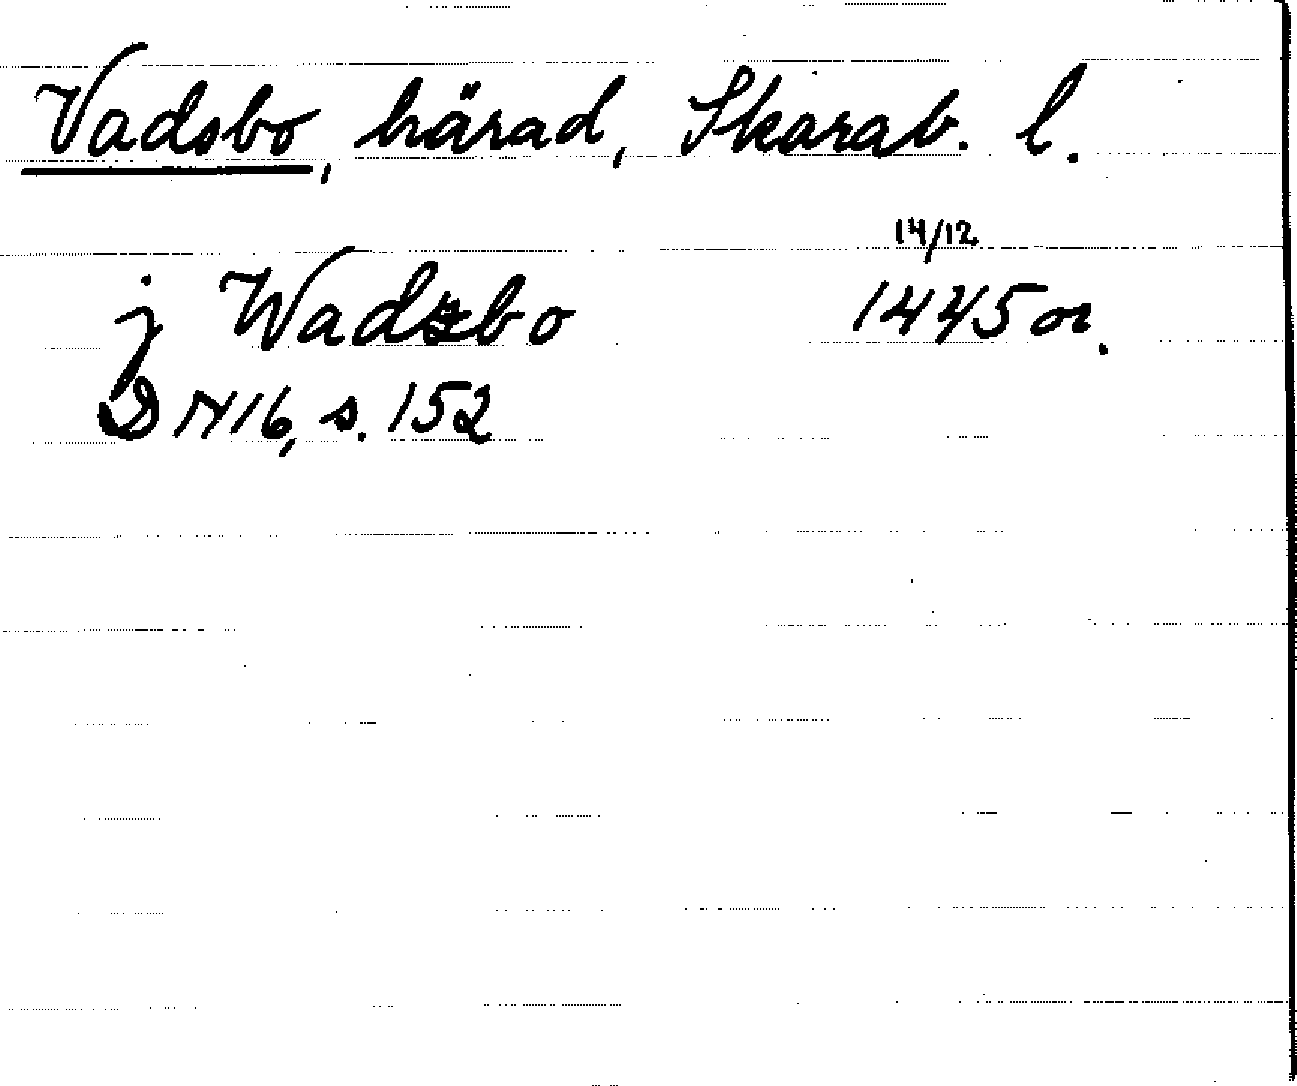 Vadsbo, härad, Skarab. l.
j Wadzbo 14/12 1445 or.
DN 16, s. 152